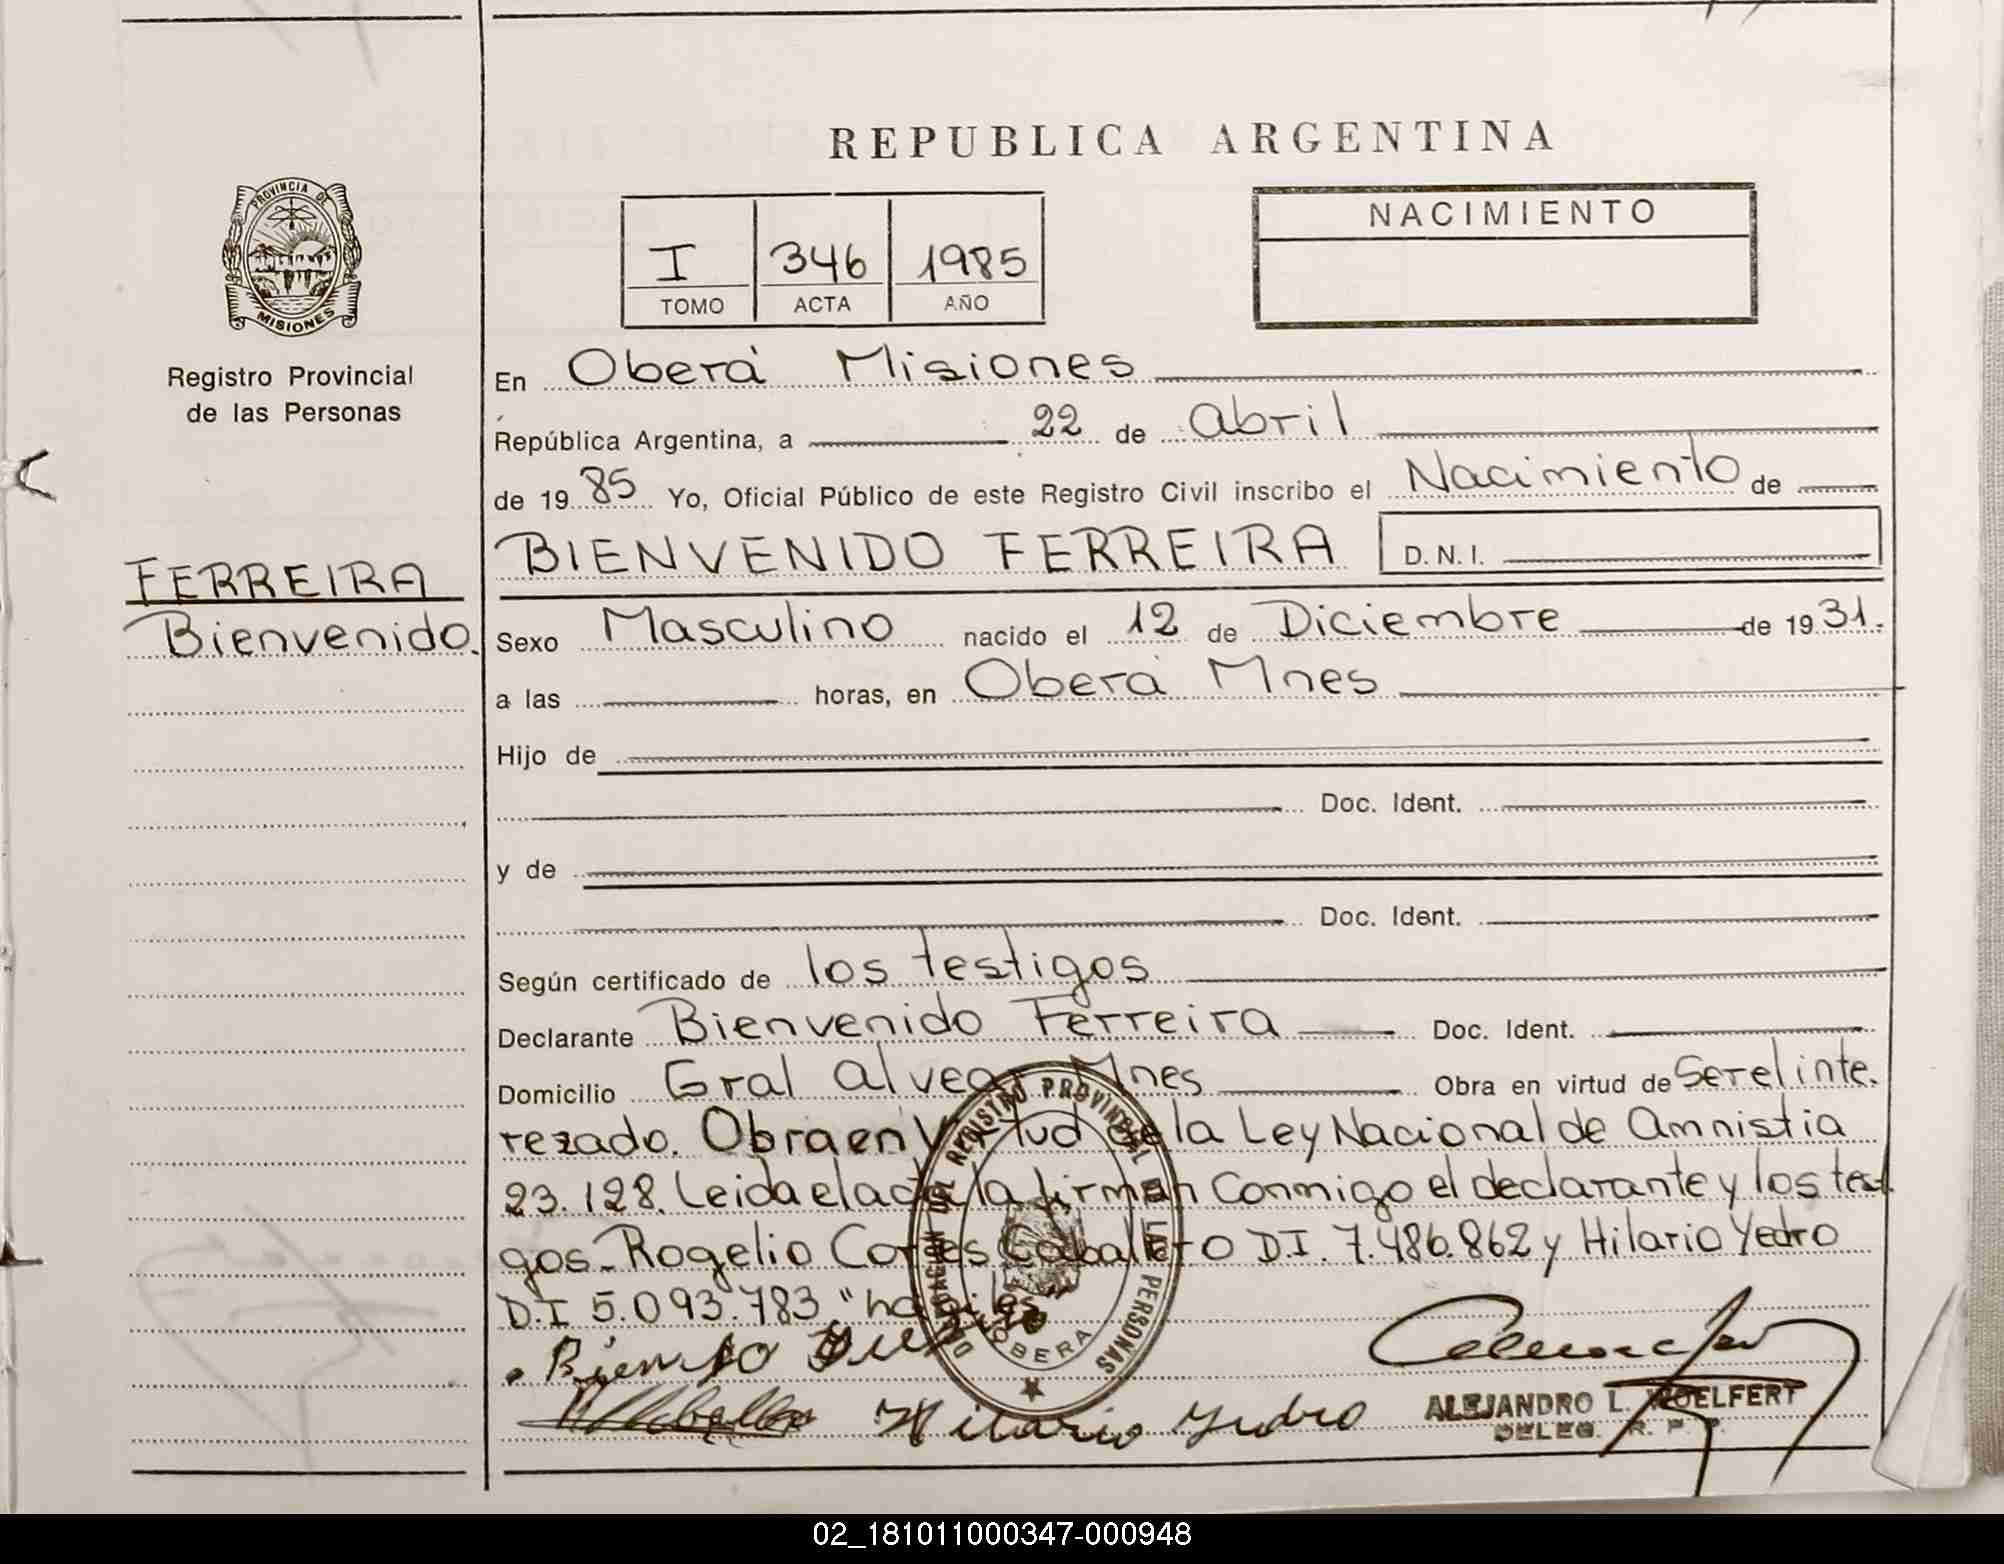 REPUBLICA ARGENTINA
PROVINCIA DE
MISIONES
Registro Provincial
de las Personas
I 346 1985
TOMO ACTA AÑO
NACIMIENTO
En Oberá Misiones
República Argentina, a 22 de abril
de 1985 Yo, Oficial Público de este Registro Civil inscribo el Nacimiento de
FERREIRA
Bienvenido.
BIENVENIDO FERREIRA D.N.I.
Sexo Masculino nacido el 12 de Diciembre de 1931.
a las horas, en Oberá Mnes
Hijo de
Doc. Ident.
y de
Doc. Ident.
Según certificado de los testigos
Declarante Bienvenido Ferreira Doc. Ident.
Domicilio Gral alvear Mnes Obra en virtud de Ser el inte.
rezado. Obra en Virtud de la Ley Nacional de Amnistia
23.128. Leida el acta la firman Conmigo el declarante y los testi
gos. Rogelio Cortes Caballero D.I. 7.486.862 y Hilario Yedro
D.I 5.093.783 "habiles"
DELEGACION DEL REGISTRO PROVINCIAL DE LAS PERSONAS
OBERA
Hilario Yedro
ALEJANDRO L. WOELFERT
DELEG. R. P. P.
02_181011000347-000948